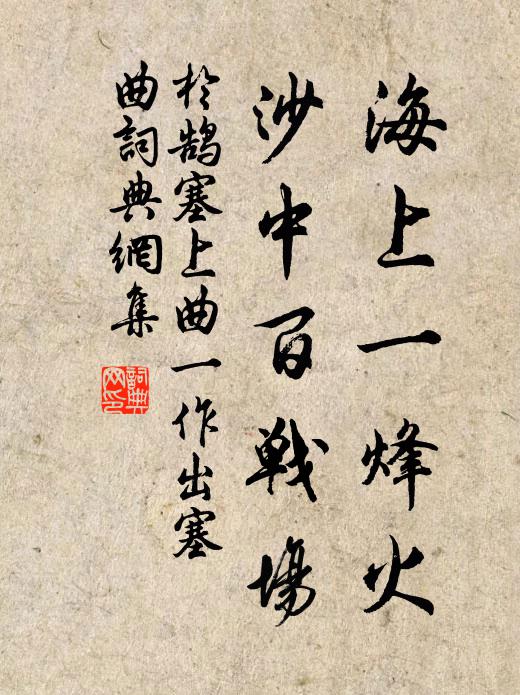 海上一烽火
沙中百戰場
於鵠塞上曲一作出塞
曲詞典網集
詞典網印